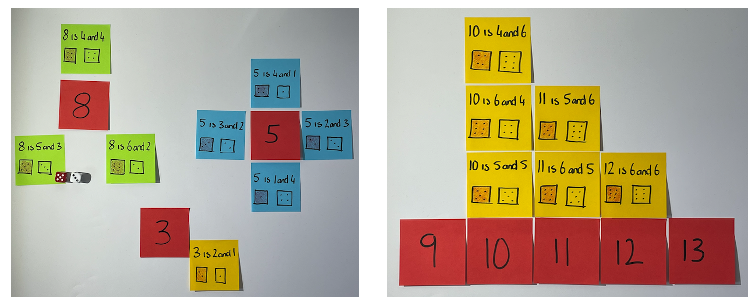 8 is 4 and 4
8
8 is 5 and 3
8 is 6 and 2
5 is 4 and 1
5 is 3 and 2
5
5 is 2 and 3
5 is 1 and 4
3
3 is 2 and 1
10 is 4 and 6
10 is 6 and 4
11 is 5 and 6
10 is 5 and 5
11 is 6 and 5
12 is 6 and 6
9
10
11
12
13